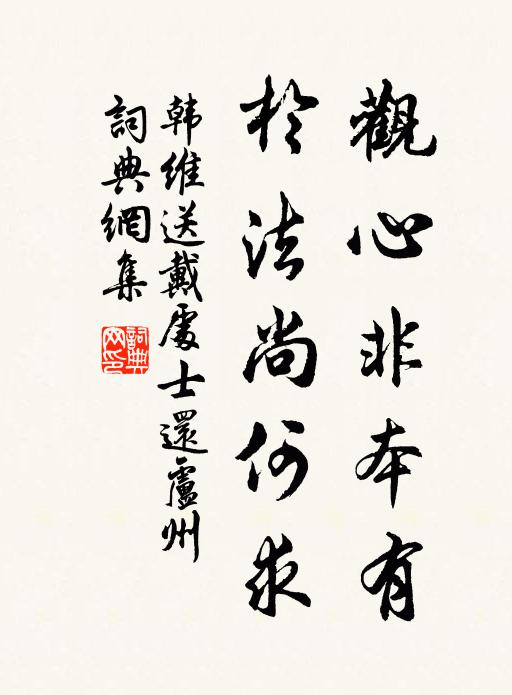 觀心非本有
於法尚何求
韩維送戴處士還盧州
詞典網集
詞典网印